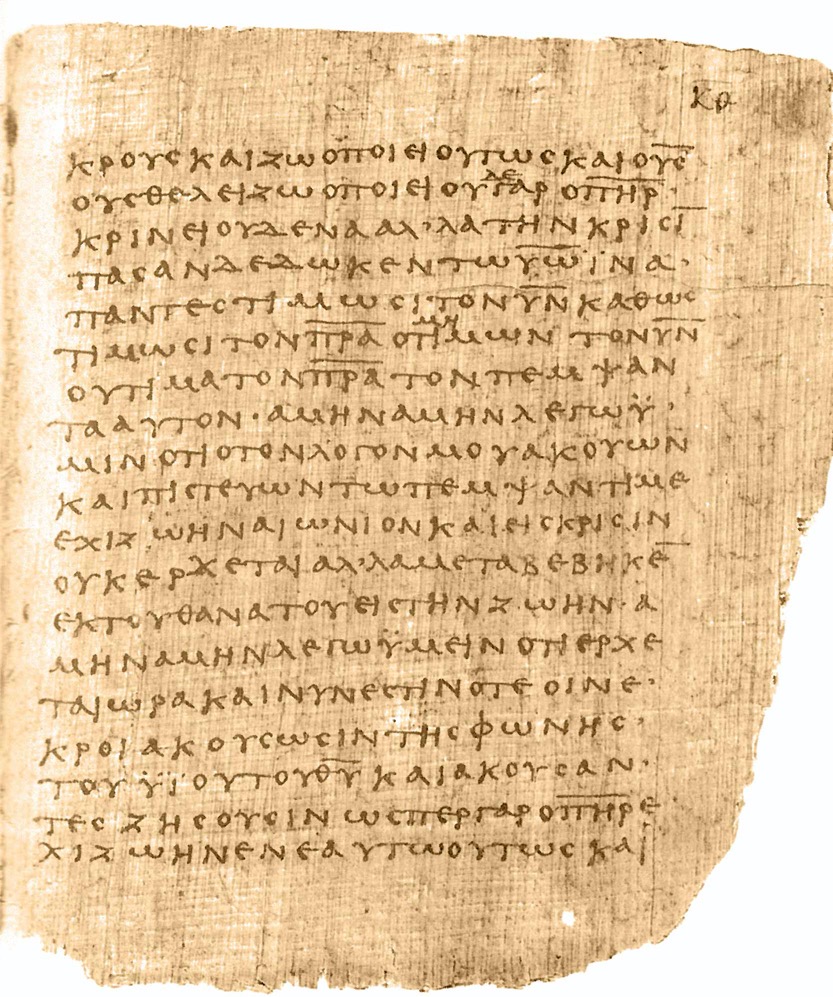 κθ
κρουςκαιζωοποιειουτωςκαιου̅ς̅
ουςθελειζωοποιειου`δε´γαρο π̅η̅ρ̅·
κρινειουδενααλ’λατηνκριςι̅
παςανδεδωκεντωυ̅ω̅ϊνα·
παντεςτιμωςιτονυ̅ν̅καθως
τιμωςιτονπ̅ρ̅α̅ο`μη´τιμωντονυ̅ν̅
ουτιματονπ̅ρ̅α̅τονπεμψαν
τααυτον·αμηναμηνλεγωϋ·
μινοτιοτονλογονμουακουων
καιπιςτευωντωπεμψαντιμε
εχιζωηναιωνιονκαιειςκριςιν
ουκερχεταιαλ’λαμεταβεβηκε̅
εκτουθανατουειςτηνζωην·α
μηναμηνλεγωϋμεινοτιερχε
ταιωρακαινυνεςτινοτεοινε·
κροιακουςωςιντηςφωνης·
τουϋϊουτουθ̅υ̅καιακουςαν·
τεςζηςουςινωςπεργαροπ̅η̅ρ̅ε
χιζωηνενεαυτωουτωςκαι